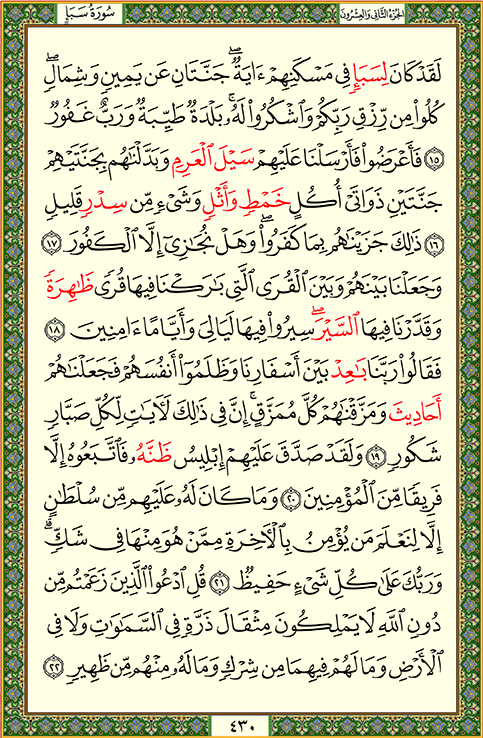 سُورَةُ سَبَإٍ الجُزْءُ الثَّانِي وَالعِشْرُونَ
لَقَدْ كَانَ لِسَبَإٍ فِي مَسْكَنِهِمْ ءَايَةٌ ۖ جَنَّتَانِ عَن يَمِينٍ وَشِمَالٍ ۖ
كُلُوا۟ مِن رِّزْقِ رَبِّكُمْ وَٱشْكُرُوا۟ لَهُۥ ۚ بَلْدَةٌ طَيِّبَةٌ وَرَبٌّ غَفُورٌ
﴿١٥﴾ فَأَعْرَضُوا۟ فَأَرْسَلْنَا عَلَيْهِمْ سَيْلَ ٱلْعَرِمِ وَبَدَّلْنَٰهُم بِجَنَّتَيْهِمْ
جَنَّتَيْنِ ذَوَاتَىْ أُكُلٍ خَمْطٍ وَأَثْلٍ وَشَىْءٍ مِّن سِدْرٍ قَلِيلٍ
﴿١٦﴾ ذَٰلِكَ جَزَيْنَٰهُم بِمَا كَفَرُوا۟ ۖ وَهَلْ نُجَٰزِىٓ إِلَّا ٱلْكَفُورَ ﴿١٧﴾
وَجَعَلْنَا بَيْنَهُمْ وَبَيْنَ ٱلْقُرَى ٱلَّتِى بَٰرَكْنَا فِيهَا قُرًى ظَٰهِرَةً
وَقَدَّرْنَا فِيهَا ٱلسَّيْرَ ۖ سِيرُوا۟ فِيهَا لَيَالِىَ وَأَيَّامًا ءَامِنِينَ ﴿١٨﴾
فَقَالُوا۟ رَبَّنَا بَٰعِدْ بَيْنَ أَسْفَارِنَا وَظَلَمُوٓا۟ أَنفُسَهُمْ فَجَعَلْنَٰهُمْ
أَحَادِيثَ وَمَزَّقْنَٰهُمْ كُلَّ مُمَزَّقٍ ۚ إِنَّ فِى ذَٰلِكَ لَءَايَٰتٍ لِّكُلِّ صَبَّارٍ
شَكُورٍ ﴿١٩﴾ وَلَقَدْ صَدَّقَ عَلَيْهِمْ إِبْلِيسُ ظَنَّهُۥ فَٱتَّبَعُوهُ إِلَّا
فَرِيقًا مِّنَ ٱلْمُؤْمِنِينَ ﴿٢٠﴾ وَمَا كَانَ لَهُۥ عَلَيْهِم مِّن سُلْطَٰنٍ
إِلَّا لِنَعْلَمَ مَن يُؤْمِنُ بِٱلْءَاخِرَةِ مِمَّنْ هُوَ مِنْهَا فِى شَكٍّ ۗ
وَرَبُّكَ عَلَىٰ كُلِّ شَىْءٍ حَفِيظٌ ﴿٢١﴾ قُلِ ٱدْعُوا۟ ٱلَّذِينَ زَعَمْتُم مِّن
دُونِ ٱللَّهِ لَا يَمْلِكُونَ مِثْقَالَ ذَرَّةٍ فِى ٱلسَّمَٰوَٰتِ وَلَا فِى
ٱلْأَرْضِ وَمَا لَهُمْ فِيهِمَا مِن شِرْكٍ وَمَا لَهُۥ مِنْهُم مِّن ظَهِيرٍ ﴿٢٢﴾
٤٣٠